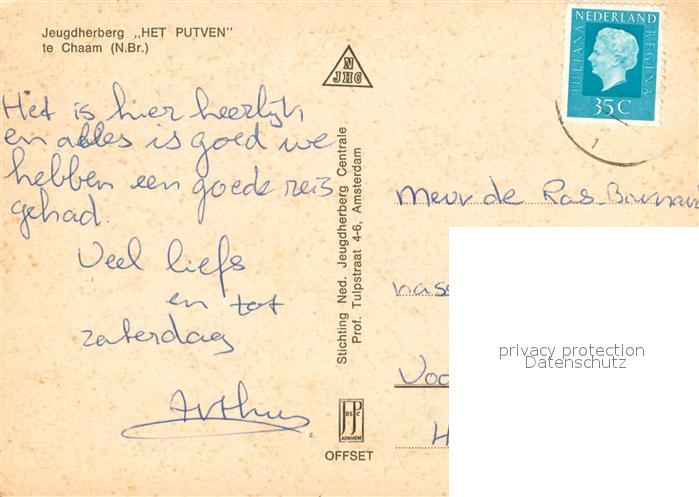 Jeugdherberg „HET PUTVEN"
te Chaam (N.Br.)
Het is hier heerlijk
en alles is goed we
hebben een goede reis
gehad.
Veel liefs
en tot
zaterdag
Arthur
N
JHC
Stichting Ned. Jeugdherberg Centrale
Prof. Tulpstraat 4-6, Amsterdam
JosPe
ARNHEM
OFFSET
NEDERLAND
JULIANA
REGINA
35 C
Mevr de Ras-
nass
Voo
H
privacy protection
Datenschutz